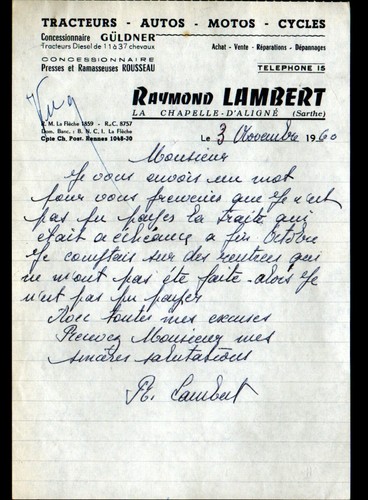 TRACTEURS - AUTOS - MOTOS - CYCLES
Concessionnaire GÜLDNER
Tracteurs Diesel de 11 à 37 chevaux
Achat - Vente - Réparations - Dépannages
CONCESSIONNAIRE
Presses et Ramasseuses ROUSSEAU
TELEPHONE 15
RAYMOND LAMBERT
LA CHAPELLE-D'ALIGNÉ (Sarthe)
R. M. La Flèche 1859 - R.C. 8757
Dom. Banc. : B. N. C. I. La Flèche
Cpte Ch. Post. Rennes 1048-30
Le 3 Novembre 1960
Monsieur
Je vous envois un mot
pour vous prevenir que Je n'ai
pas pu payer la traite qui
était a échéance a fin Octobre
Je comptais sur des rentrees qui
ne m'ont pas été faite alors Je
n'ai pas pu payer
Avec toutes mes excuses
Recevez Monsieur mes
sincères salutations
R. Lambert